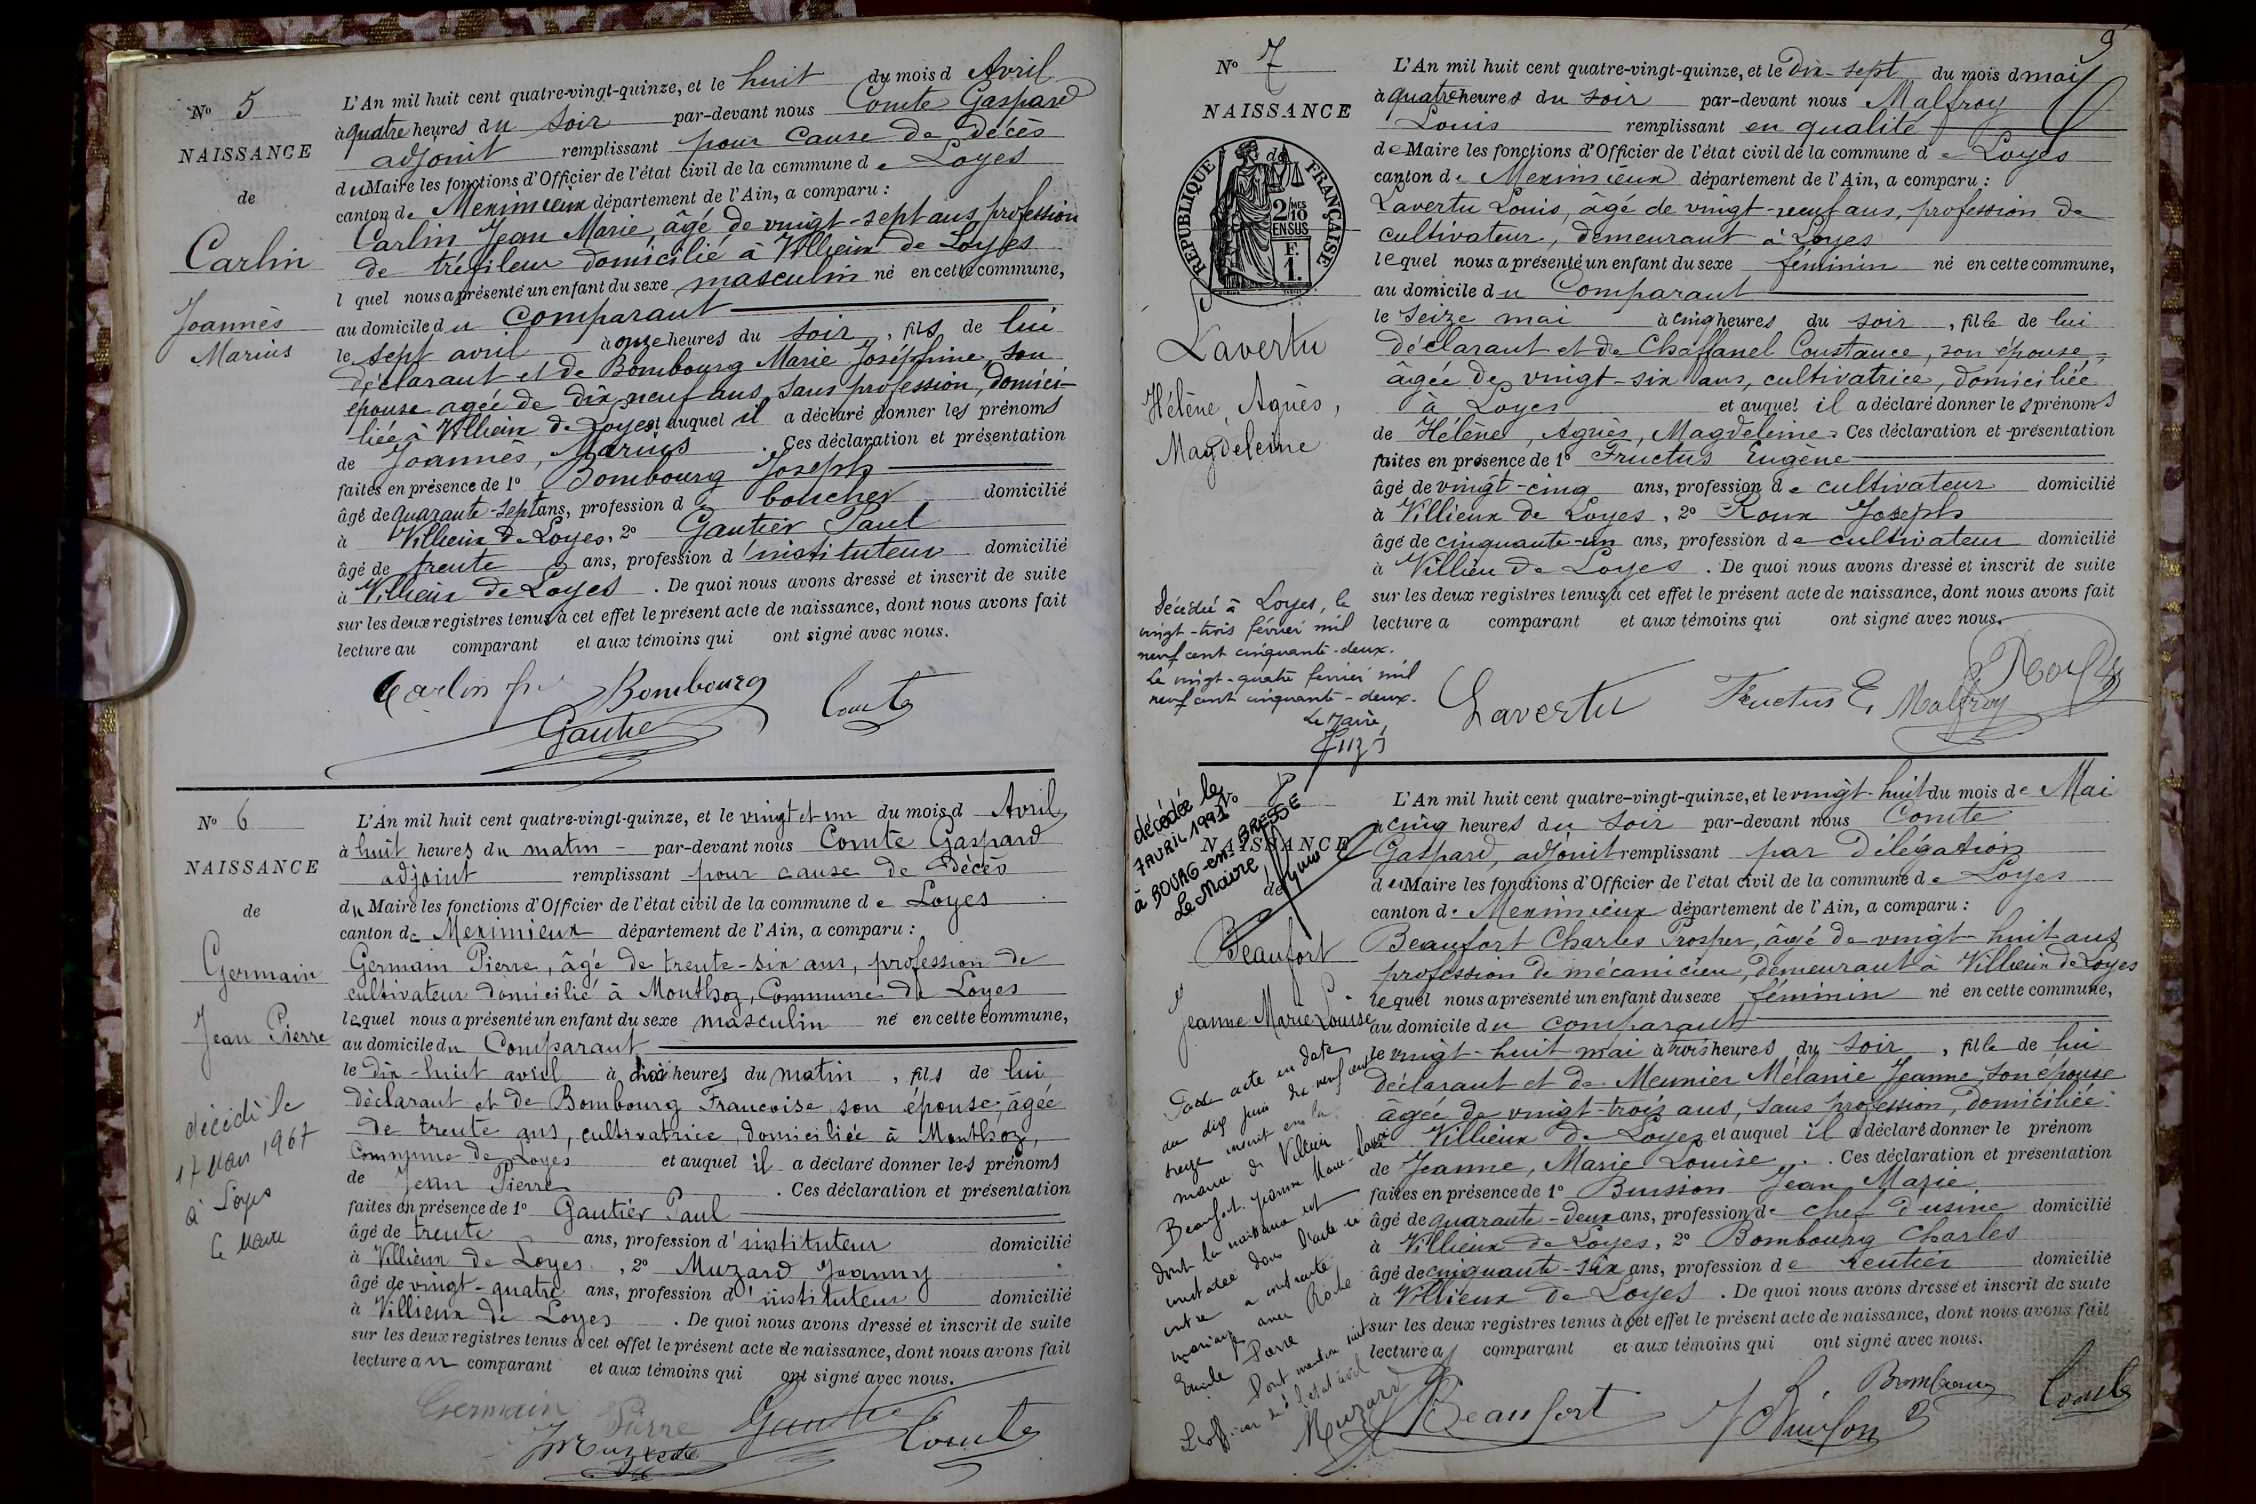 Nº 5
NAISSANCE
de
Carlin
Joannès
Marius
L'An mil huit cent quatre-vingt-quinze, et le huit du mois d Avril
à quatre heures du soir par-devant nous Comte Gaspard
adjoint remplissant pour cause de décès
du Maire les fonctions d'Officier de l'état civil de la commune de Loyes
canton de Meximieux département de l'Ain, a comparu :
Carlin Jean Marie âgé de vingt-sept ans, profession
de tréfileur domicilié à Villieux de Loyes
l quel nous a présenté un enfant du sexe masculin né en cette commune,
au domicile du Comparant
le sept avril à onze heures du soir, fils de lui
déclarant et de Bombourg Marie Joséphine, son
épouse agée de dix neuf ans, sans profession, domici-
liée à Villieux de Loyes et auquel il a déclaré donner les prénoms
de Joannès, Marius. Ces déclaration et présentation
faites en présence de 1º Bombourg Joseph
âgé de quarante-sept ans, profession d boucher domicilié
à Villieux de Loyes, 2º Gautier Paul
âgé de trente ans, profession d'instituteur domicilié
à Villieux de Loyes. De quoi nous avons dressé et inscrit de suite
sur les deux registres tenus à cet effet le présent acte de naissance, dont nous avons fait
lecture au comparant et aux témoins qui ont signé avec nous.
Carlin Bombourg Comte
Gautier
Nº 6
NAISSANCE
de
Germain
Jean Pierre
décédé le
17 Mars 1967
à Loyes
Le Maire
L'An mil huit cent quatre-vingt-quinze, et le vingt et un du mois d Avril
à huit heures du matin - par-devant nous Comte Gaspard
adjoint remplissant pour cause de décès
du Maire les fonctions d'Officier de l'état civil de la commune de Loyes
canton de Meximieux département de l'Ain, a comparu :
Germain Pierre, âgé de trente-six ans, profession de
cultivateur domicilié à Monthoz, Commune de Loyes
lequel nous a présenté un enfant du sexe masculin né en cette commune,
au domicile du Comparant
le dix-huit avril à heures du matin, fils de lui
déclarant et de Bombourg Francoise son épouse, âgée
de trente ans, cultivatrice, domiciliée à Monthoz,
Commune de Loyes et auquel il a déclaré donner les prénoms
de Jean Pierre. Ces déclaration et présentation
faites en présence de 1º Gautier Paul
âgé de trente ans, profession d'instituteur domicilié
à Villieux de Loyes, 2º Muzard Joanny
âgé de vingt-quatre ans, profession d'instituteur domicilié
à Villieux de Loyes. De quoi nous avons dressé et inscrit de suite
sur les deux registres tenus à cet effet le présent acte de naissance, dont nous avons fait
lecture au comparant et aux témoins qui ont signé avec nous.
Germain Pierre Gautier Comte
Muzard
9
Nº 7
NAISSANCE
de
REPUBLIQUE FRANÇAISE
2/10 MES
EN SUS
F.
1.
Lavertu
Hélène, Agnès,
Magdeleine
Décédée à Loyes, le
vingt-trois février mil
neuf cent cinquante-deux.
Le vingt-quatre février mil
neuf cent cinquante-deux.
Le Maire,
L'An mil huit cent quatre-vingt-quinze, et le dix-sept du mois d mai
à quatre heures du soir par-devant nous Malfroy
Louis remplissant en qualité
de Maire les fonctions d'Officier de l'état civil de la commune de Loyes
canton de Meximieux département de l'Ain, a comparu :
Lavertu Louis, âgé de vingt-neuf ans, profession de
cultivateur, demeurant à Loyes
lequel nous a présenté un enfant du sexe féminin né en cette commune,
au domicile du Comparant
le seize mai à cinq heures du soir, fille de lui
déclarant et de Chaffanel Constance, son épouse,
âgée de vingt-six ans, cultivatrice, domiciliée
à Loyes et auquel il a déclaré donner les prénoms
de Hélène, Agnès, Magdeleine. Ces déclaration et présentation
faites en présence de 1º Fructus Eugène
âgé de vingt-cinq ans, profession de cultivateur domicilié
à Villieux de Loyes, 2º Roux Joseph
âgé de cinquante-un ans, profession de cultivateur domicilié
à Villieu de Loyes. De quoi nous avons dressé et inscrit de suite
sur les deux registres tenus à cet effet le présent acte de naissance, dont nous avons fait
lecture a comparant et aux témoins qui ont signé avec nous.
Lavertu Fructus E. Malfroy Roux
décédée le
7 AVRIL 1991
à BOURG-en-BRESSE
Le Maire
Nº 8
NAISSANCE
de
Beaufort
Jeanne Marie Louise
Par acte en date
du dix juin dix neuf cent
treize inscrit en la
mairie de Villieu
Beaufort Jeanne Marie-Louise
dont la naissance est
constatée dans l'acte ci
contre a contracté
mariage avec Roche
Emile Pierre
Dont mention suit
L'officier de l'état civil
Muzard
L'An mil huit cent quatre-vingt-quinze, et le vingt-huit du mois de Mai
à cinq heures du soir par-devant nous Comte
Gaspard, adjoint remplissant par délégation
du Maire les fonctions d'Officier de l'état civil de la commune de Loyes
canton de Meximieux département de l'Ain, a comparu :
Beaufort Charles Prosper, âgé de vingt-huit ans
profession de mécanicien, demeurant à Villieux de Loyes
lequel nous a présenté un enfant du sexe féminin né en cette commune,
au domicile du comparant
le vingt-huit mai à trois heures du soir, fille de lui
déclarant et de Meunier Mélanie Jeanne, son épouse
âgée de vingt-trois ans, sans profession, domiciliée
à Villieux de Loyes et auquel il a déclaré donner le prénom
de Jeanne, Marie Louise. Ces déclaration et présentation
faites en présence de 1º Buisson Jean Marie
âgé de quarante-deux ans, profession de chef d'usine domicilié
à Villieux de Loyes, 2º Bombourg Charles
âgé de cinquante-six ans, profession de rentier domicilié
à Villieux de Loyes. De quoi nous avons dressé et inscrit de suite
sur les deux registres tenus à cet effet le présent acte de naissance, dont nous avons fait
lecture a comparant et aux témoins qui ont signé avec nous.
Beaufort J Buisson Bombourg Comte